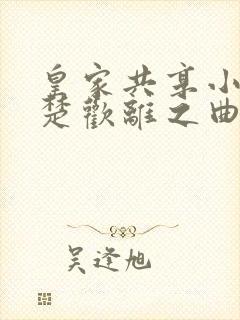 皇家共享小
楚歡離之曲
吴逢旭